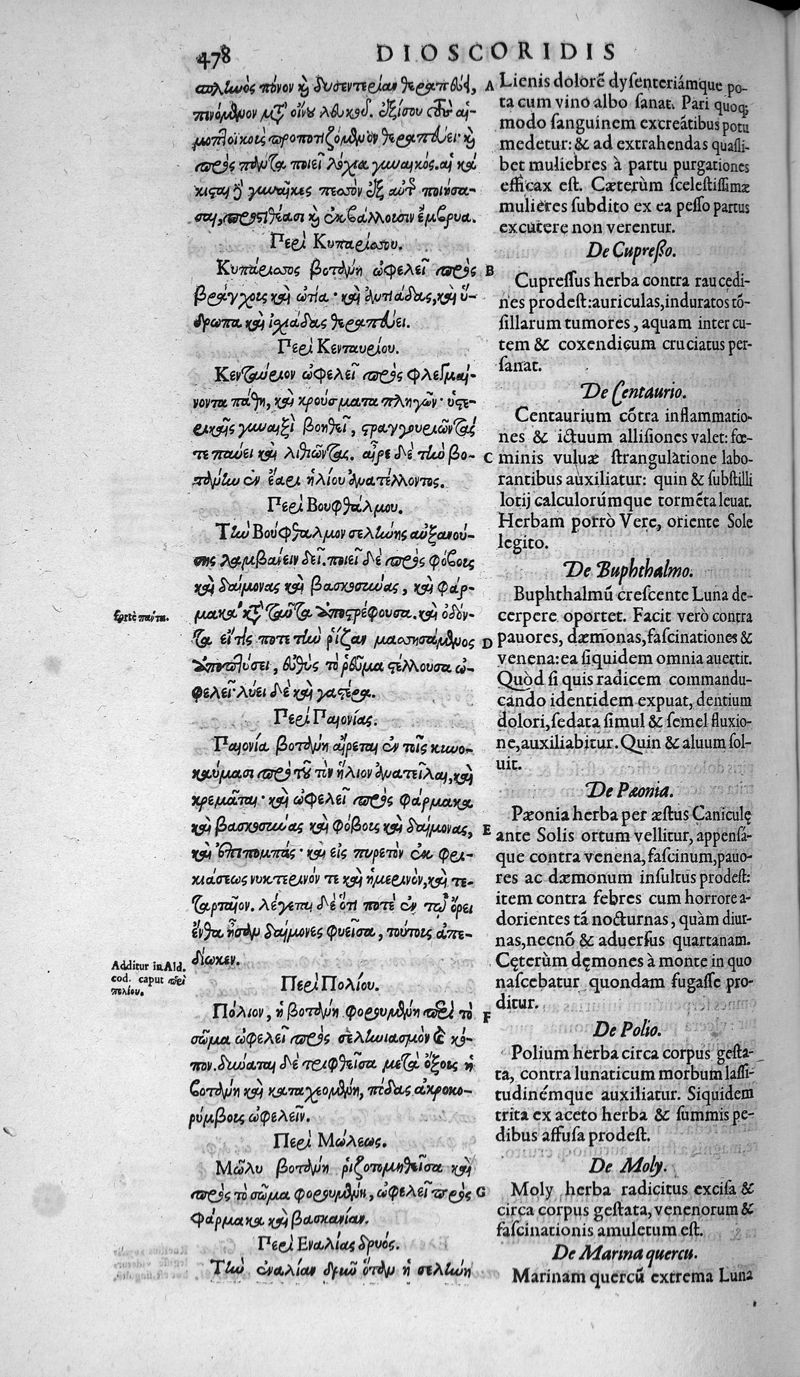 478 DIOSCORIDIS
σπληνὸς πόνον καὶ δυσεντερίαν θεραπεύει,
πινόμενον μετ' οἴνου λευκοῦ. ἐξίσου αἱ-
μοπτοϊκοῖς προποτιζόμενον θεραπεύει· καὶ
πρὸς πάντα ποιεῖ λέχια γυναικός. αἱ κά-
κισται δὲ γυναῖκες πεσσὸν ἐξ αὐτῆς ποιήσα-
σαι, προστιθέασι καὶ ἐκβάλλουσιν ἔμβρυα.
Περὶ Κυπαρίσσου.
Κυπάρισσος βοτάνη ὠφελεῖ πρὸς
βράγχους καὶ ὠτία· καὶ ἀντιάδας, καὶ ὕ-
δρωπα καὶ ἰσχιάδας θεραπεύει.
Περὶ Κενταυρίου.
Κενταύριον ὠφελεῖ πρὸς φλεγμαί-
νοντα πάθη, καὶ κρούσματα πληγῶν· ὑστε-
ρικῆς γυναιξὶ βοηθεῖ, στραγγουριῶντάς
τε παύει καὶ λιθιῶντας. αἶρε δὲ τὴν βο-
τάνην ἐν ἔαρι ἡλίου ἀνατέλλοντος.
Περὶ Βουφθάλμου.
Τὴν Βούφθαλμον σελήνης αὐξανού-
σης λαμβάνειν δεῖ. ποιεῖ δὲ πρὸς φόβους
καὶ δαίμονας καὶ βασκοσύνας, καὶ φάρ-
μακα· ταῦτα ἀποστρέφουσα. καὶ ὀδόν-
τα εἴ τις ποτε τὴν ῥίζαν μασησάμενος
ἀποπτύσει, εὐθὺς τὸ ῥεῦμα στέλλουσα ὠ-
φελεῖ· λύει δὲ καὶ γαστέρα.
Περὶ Παιονίας.
Παιονία βοτάνη αἴρεται ἐν τοῖς κυνο-
καύμασι πρὸ τοῦ τὸν ἥλιον ἀνατεῖλαι, καὶ
κρεμᾶται· καὶ ὠφελεῖ πρὸς φάρμακα
καὶ βασκοσύνας καὶ φόβους καὶ δαίμονας,
καὶ ἐπιπομπάς· καὶ εἰς πυρετὸν ἐκ φρι-
κιάσεως νυκτερινόν τε καὶ ἡμερινὸν, καὶ τε-
ταρταῖον. λέγεται δὲ ὅτι ποτὲ ἐν τῷ ὄρει
ἔνθα ἦσαν δαίμονες φυεῖσα, τούτους ἀπε-
δίωκεν.
Περὶ Πολίου.
Πόλιον, ἡ βοτάνη φορουμένη περὶ τὸ
σῶμα ὠφελεῖ πρὸς σεληνιασμὸν καὶ κό-
πον. δύναται δὲ τριφθεῖσα μετὰ ὄξους ἡ
βοτάνη καὶ καταχεομένη, πόδας ἀκροκο-
ρύμβους ὠφελεῖν.
Περὶ Μώλεως.
Μῶλυ βοτάνη ῥιζοτομηθεῖσα καὶ
πρὸς τὸ σῶμα φορουμένη, ὠφελεῖ πρὸς
φάρμακα καὶ βασκανίαν.
Περὶ Ἐναλίας δρυός.
Τὴν ἐναλίαν δρῦν ὅταν ἡ σελήνη
forte πάντα.
Additur in Ald.
cod. caput περὶ
πολίου.
A
B
C
D
E
F
G
Lienis dolorē dysenteriámque po-
ta cum vino albo sanat. Pari quoq;
modo sanguinem excreātibus potu
medetur: & ad extrahendas quasli-
bet muliebres à partu purgationes
efficax est. Cæterùm scelestissimæ
mulieres subdito ex ea pesso partus
excutere non verentur.
De Cupresso.
Cupressus herba contra raucedi-
nes prodest: auriculas, induratos tō-
sillarum tumores, aquam inter cu-
tem & coxendicum cruciatus per-
sanat.
De Centaurio.
Centaurium cōtra inflammatio-
nes & ictuum allisiones valet: fœ-
minis vuluæ strangulàtione labo-
rantibus auxiliatur: quin & substilli
lotij calculorúmque tormēta leuat.
Herbam porrò Vere, oriente Sole
legito.
De Buphthalmo.
Buphthalmū crescente Luna de-
cerpere oportet. Facit verò contra
pauores, dæmonas, fascinationes &
venena: ea siquidem omnia auertit.
Quòd si quis radicem commandu-
cando identidem expuat, dentium
dolori, sedata simul & semel fluxio-
ne, auxiliabitur. Quin & aluum sol-
uit.
De Pæonia.
Pæonia herba per æstus Caniculę
ante Solis ortum vellitur, appensá-
que contra venena, fascinum, pauo-
res ac dæmonum insultus prodest:
item contra febres cum horrore a-
dorientes tā nocturnas, quàm diur-
nas, necnō & aduersus quartanam.
Cęterùm dęmones à monte in quo
nascebatur quondam fugasse pro-
ditur.
De Polio.
Polium herba circa corpus gesta-
ta, contra lunaticum morbum lassi-
tudinémque auxiliatur. Siquidem
trita ex aceto herba & summis pe-
dibus affusa prodest.
De Moly.
Moly herba radicitus excisa &
circa corpus gestata, venenorum &
fascinationis amuletum est.
De Marina quercu.
Marinam quercū extrema Luna